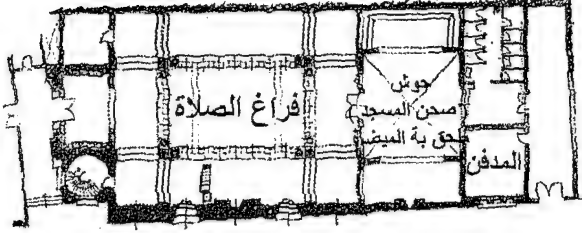 فراغ الصلاة
حوش
صحن المسجد
حق بة الميض
المدفن